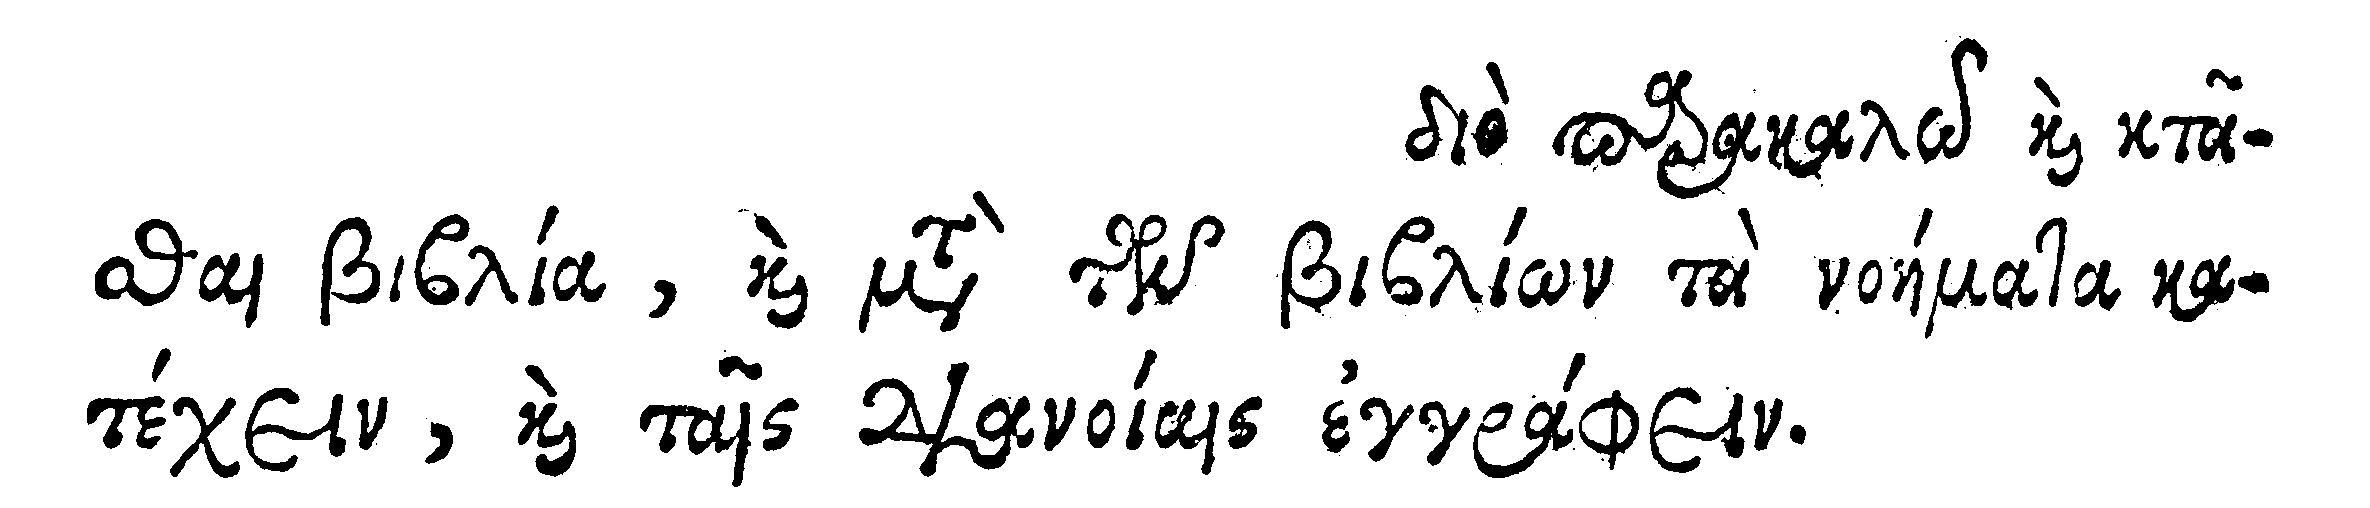 διὸ παρακαλῶ καὶ κτᾶ-
σθαι βιβλία, καὶ μετὰ τῶν βιβλίων τὰ νοήματα κα-
τέχειν, καὶ ταῖς διανοίαις ἐγγράφειν.